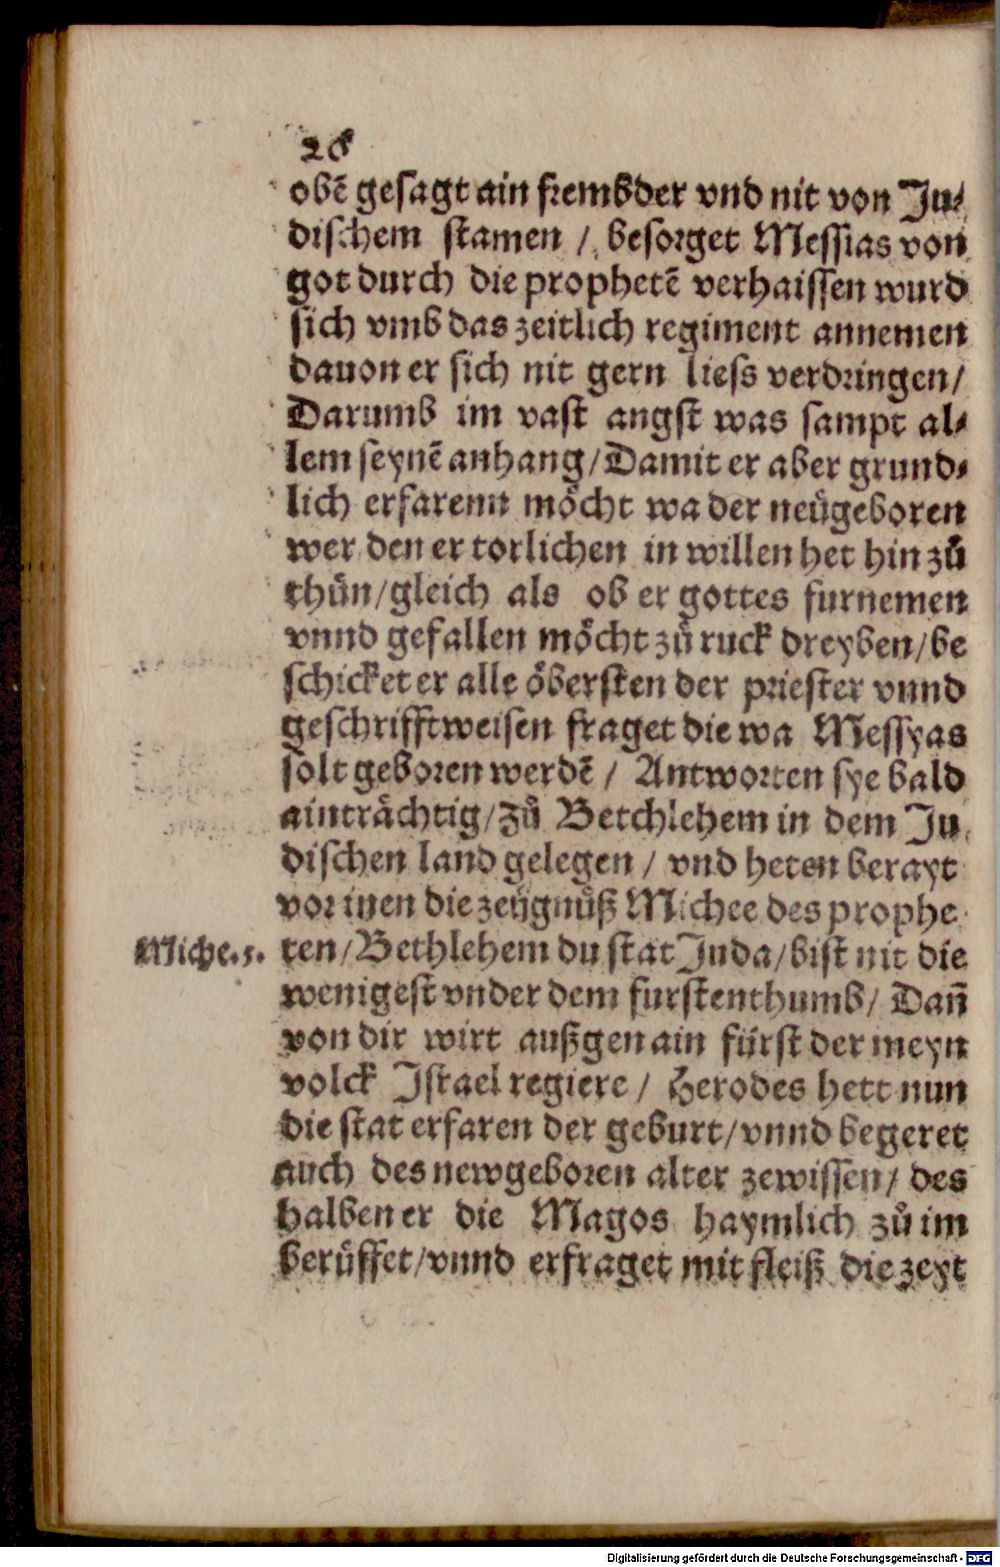 obē gesagt ain frembder vnd nit von Ju⸗
dischem stamen / besorget Messias von
got durch die prophetē verhaissen wurd
sich vmb das zeitlich regiment annemen
dauon er sich nit gern liess verdringen/
Darumb im vast angst was sampt al⸗
lem seynē anhang/Damit er aber grund⸗
lich erfarenn möcht wa der neügeboren
wer den er torlichen in willen het hin zů
thün/gleich als ob er gottes furnemen
vnnd gefallen möcht zů ruck dreyben/be
schicket er alle öbersten der priester vnnd
geschrifftweisen fraget die wa Messyas
solt geboren werdē / Antworten sye bald
ainträchtig/zů Betchlehem in dem Ju
dischen land gelegen / vnd heten berayt
vor inen die zeügnüß Michee des prophe
Miche.5. ten/Bethlehem du stat Juda/bist nit die
wenigest vnder dem furstenthumb/ Dañ
von dir wirt außgen ain fürst der meyn
volck Israel regiere / Herodes hett nun
die stat erfaren der geburt/vnnd begeret
auch des newgeboren alter zewissen/ des
halben er die Magos haymlich zů im
berüffet/vnnd erfraget mit fleiß die zeyt
Digitalisierung gefördert durch die Deutsche Forschungsgemeinschaft - DFG